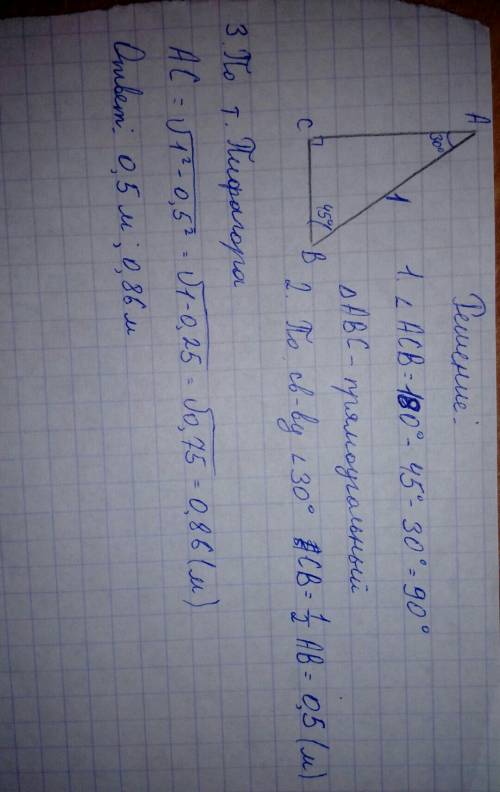 Решение:
A
30°
1
C
45°
B
1. ∠ACB = 180° - 45° - 30° = 90°
△ABC - прямоугольный
2. По св-ву ∠30° CB = 1/2 AB = 0,5 (м)
3. По т. Пифагора
AC = √1² - 0,5² = √1 - 0,25 = √0,75 = 0,86 (м)
Ответ: 0,5 м; 0,86 м